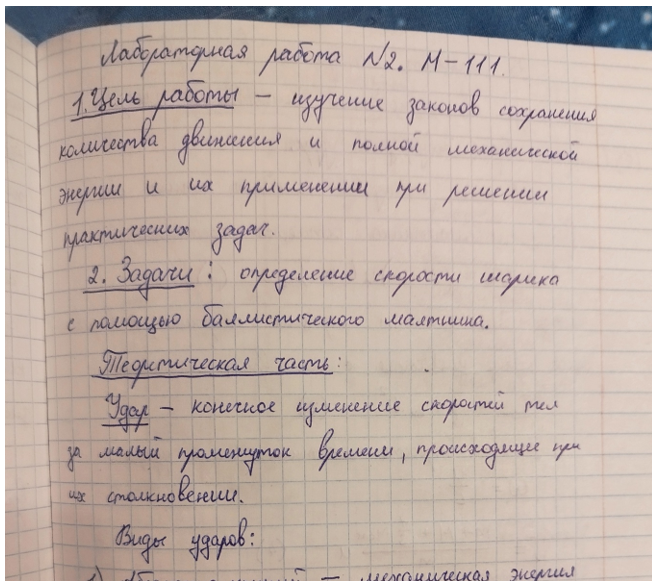 Лабораторная работа №2. М-111.
1. Цель работы – изучение законов сохранения
количества движения и полной механической
энергии и их применении при решении
практических задач.
2. Задачи: определение скорости шарика
с помощью баллистического маятника.
Теоретическая часть:
Удар – конечное изменение скоростей тел
за малый промежуток времени, происходящее при
их столкновении.
Виды ударов:
1) – механическая энергия